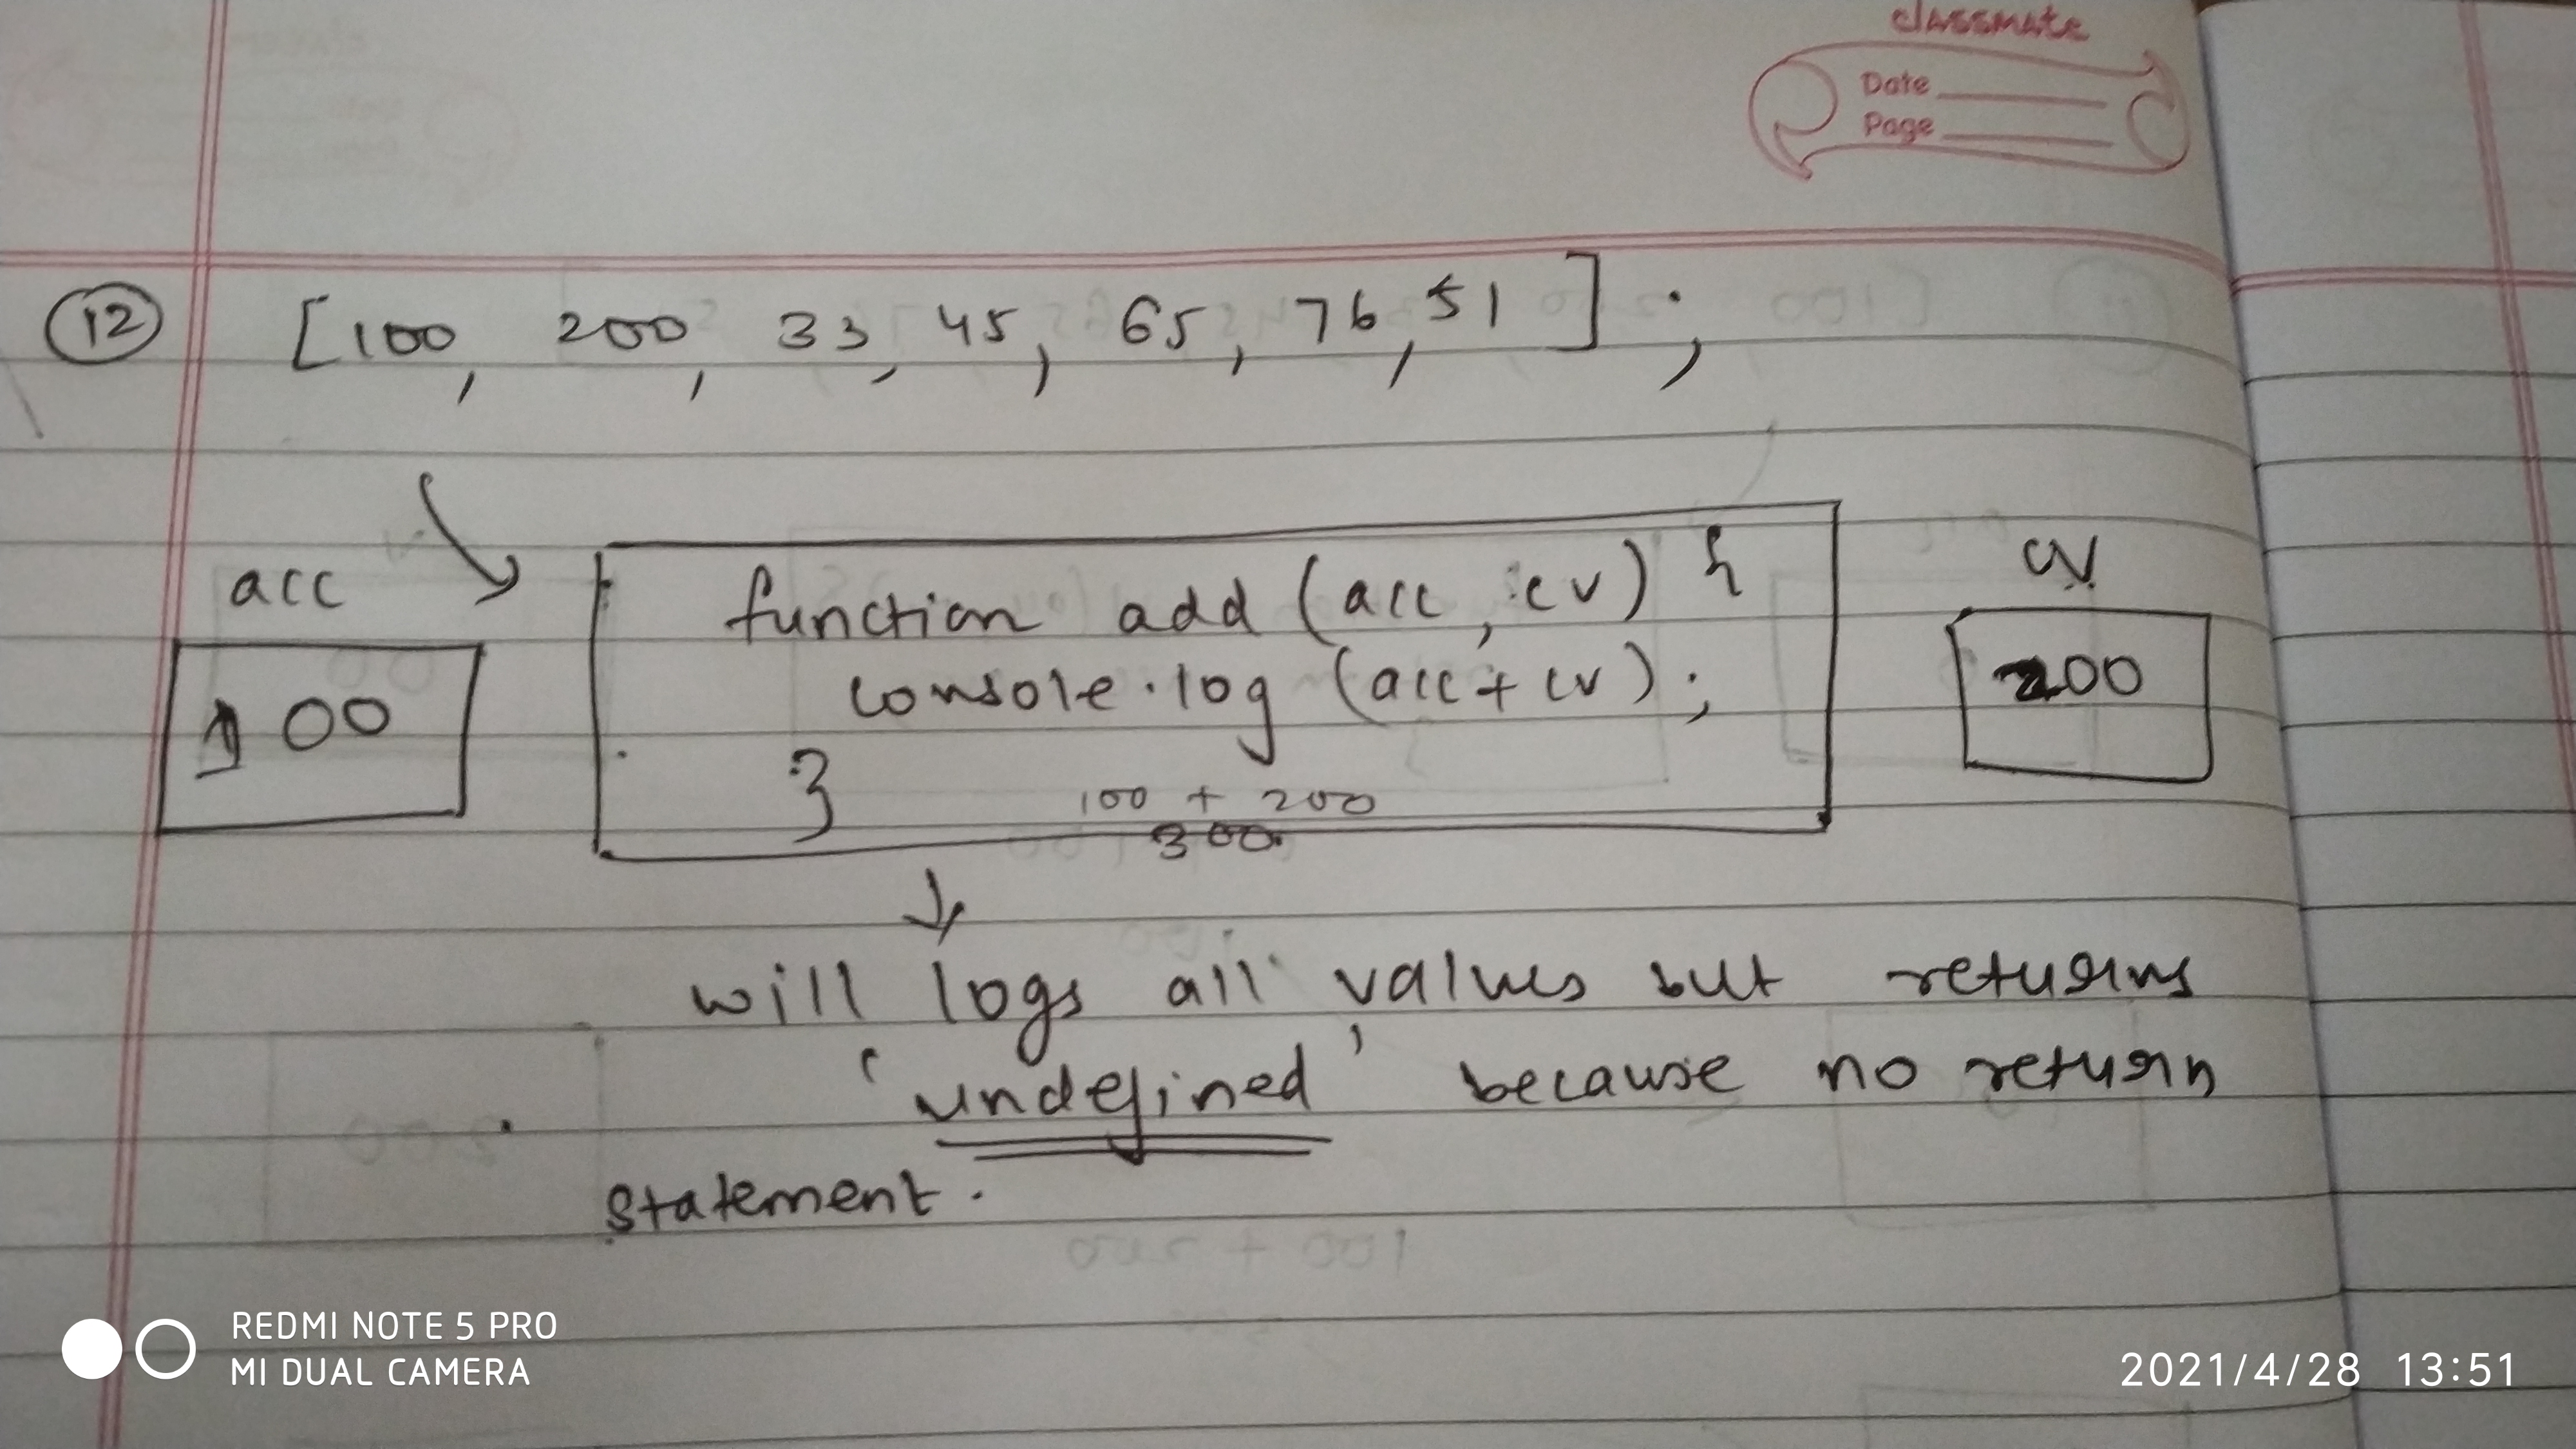 classmate
Date
Page
12 [100, 200, 33, 45, 65, 76, 51];
acc
cv
function add (acc, cv) {
console.log (acc + cv);
100
200
}
100 + 200
300
will logs all values but returns
'undefined' because no return
statement.
REDMI NOTE 5 PRO
MI DUAL CAMERA
2021/4/28 13:51